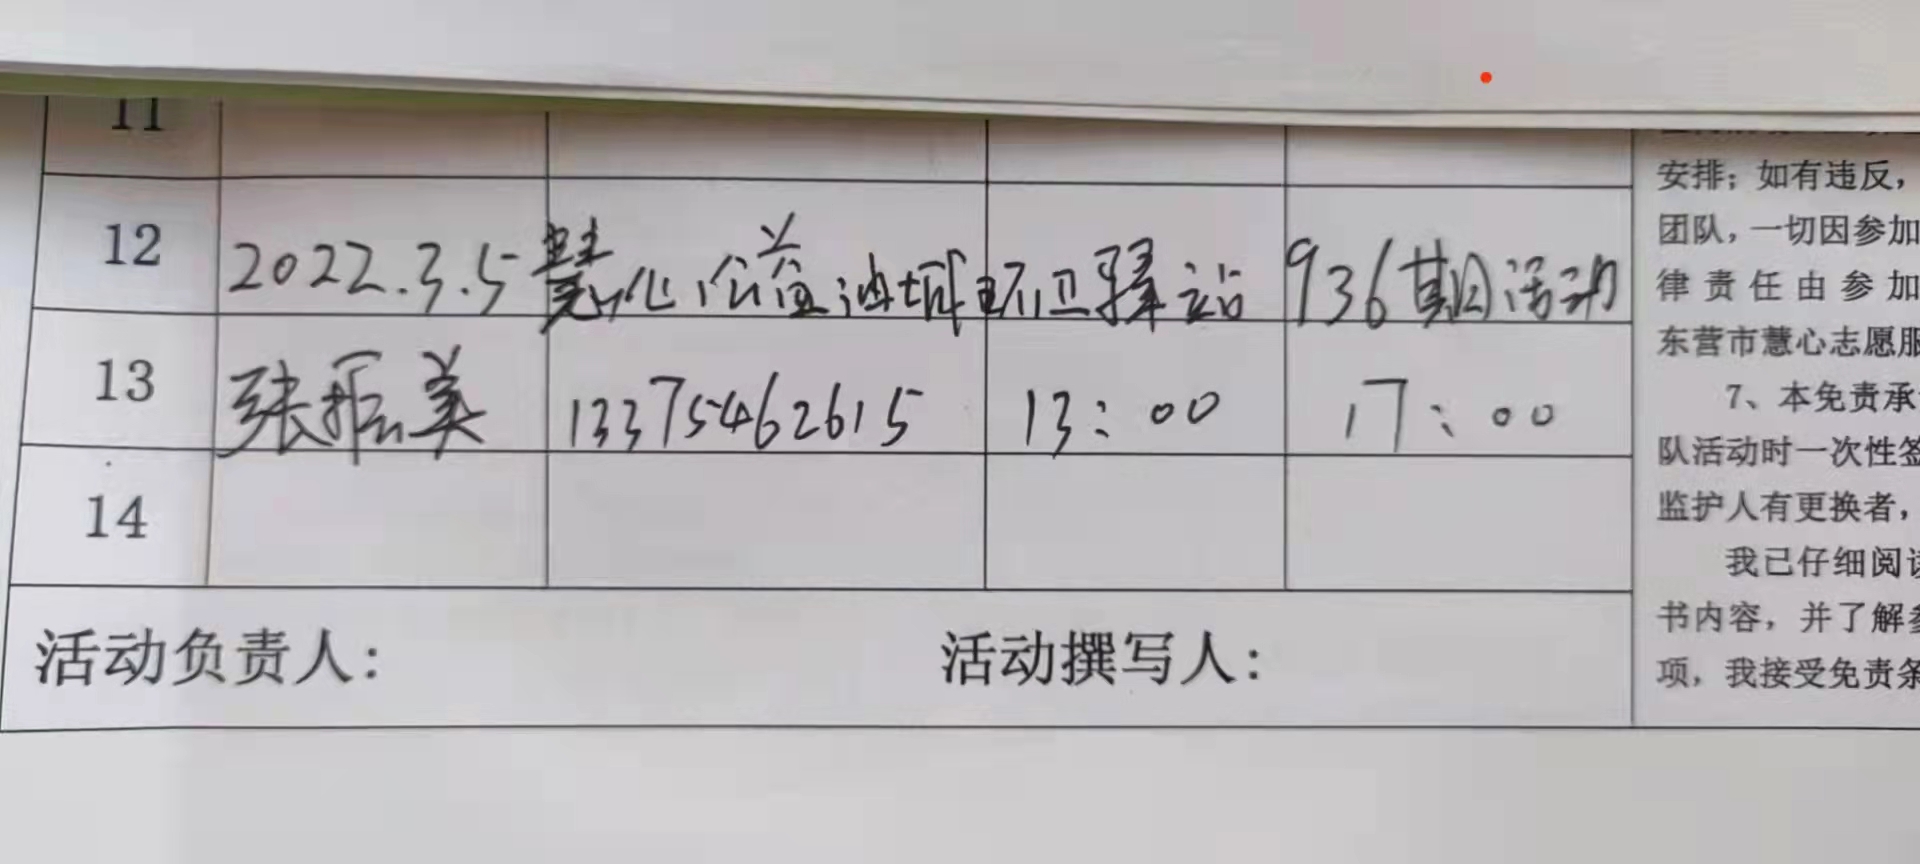 11
12 2022.3.5 慧心公益油城环卫驿站 936期活动
13 张振美 13375462615 13:00 17:00
14
活动负责人: 活动撰写人:
安排；如有违反，
团队，一切因参加
律责任由参加
东营市慧心志愿服
7、本免责承
队活动时一次性签
监护人有更换者，
我已仔细阅读
书内容，并了解参
项，我接受免责条